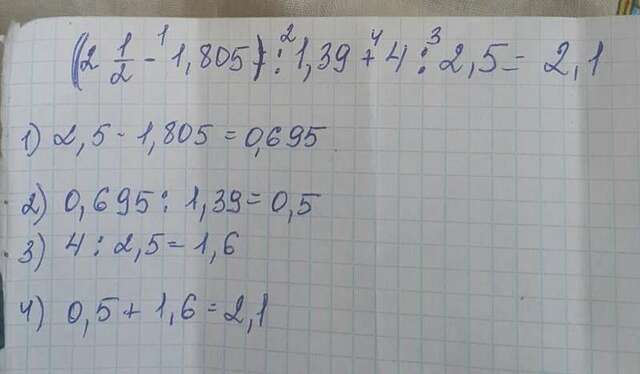 (2 1/2 -¹ 1,805) :² 1,39 +⁴ 4 :³ 2,5 = 2,1
1) 2,5 - 1,805 = 0,695
2) 0,695 : 1,39 = 0,5
3) 4 : 2,5 = 1,6
4) 0,5 + 1,6 = 2,1